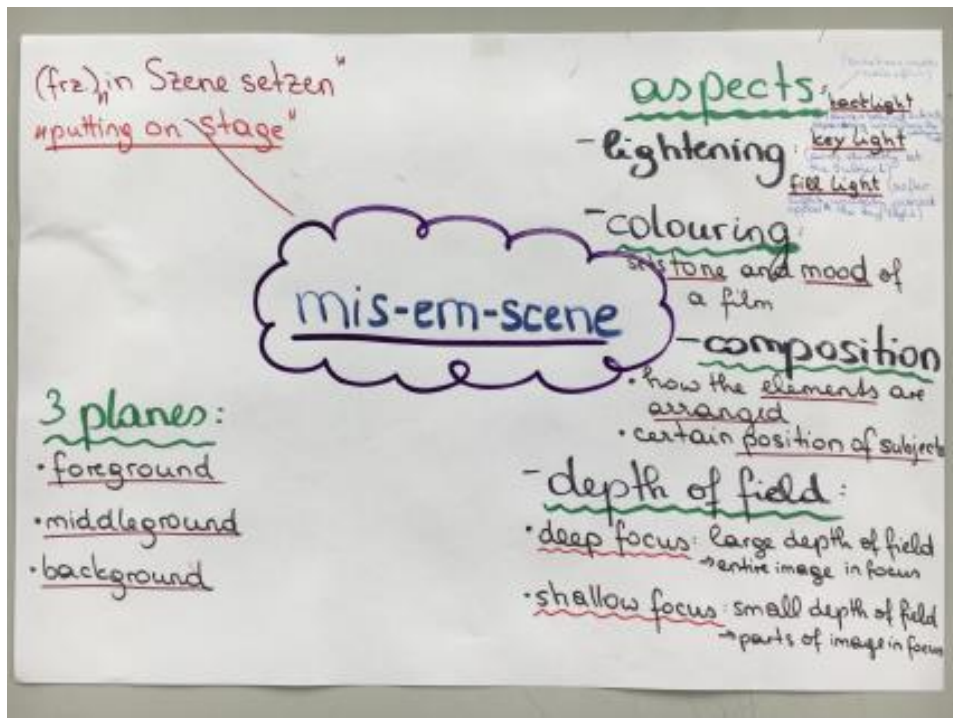 (frz) „in Szene setzen"
"putting on stage"
mis-em-scene
3 planes:
· foreground
· middleground
· background
aspects:
- lightening: backlight
key light
(points directly at
the subject)
fill light (softer
light usually placed
opposite the key light)
- colouring:
sets tone and mood of
a film
- composition
· how the elements are
arranged
· certain position of subject
- depth of field:
· deep focus: large depth of field
→ entire image in focus
· shallow focus: small depth of field
→ parts of image in focus